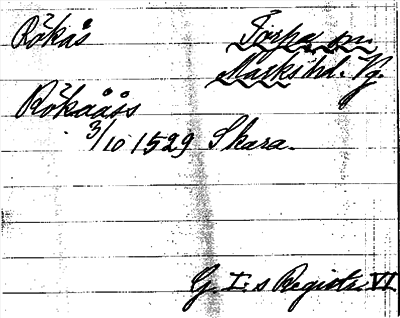 Rökås Torpa sn.
Marks hd. Vg.
Rökaåås
3/10 1529 Skara.
G. I:s Registr. VI